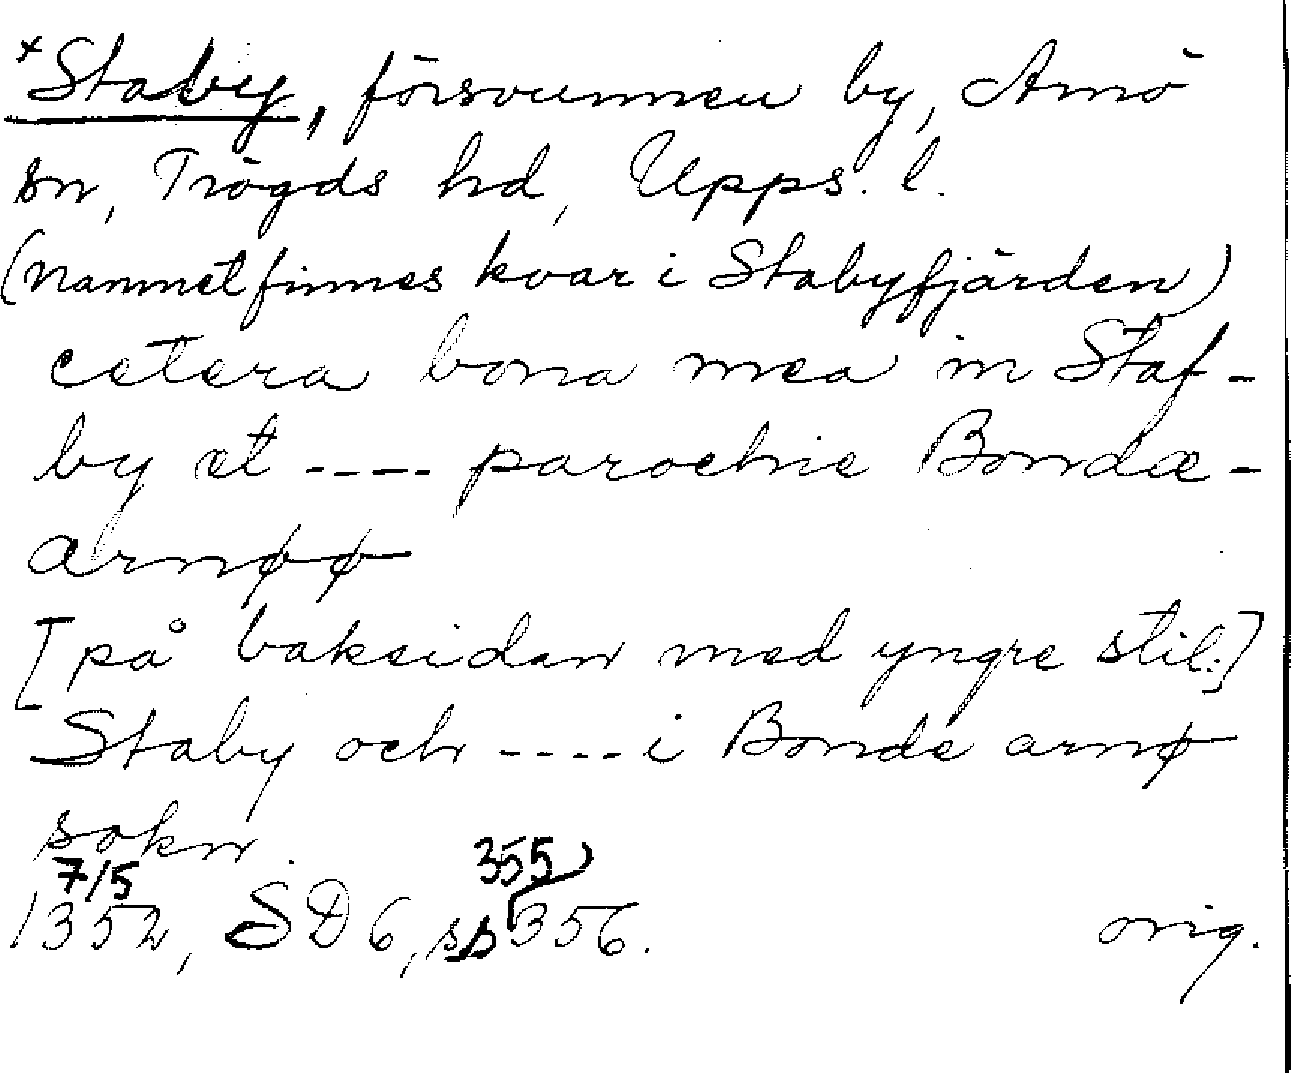 *Staby, försvunnen by, Arnö
sn, Trögds hd, Upps. l.
(namnet finnes kvar i Stabyfjärden)
cetera bona mea in Staf-
by et ---- parochie Bondæ-
arnøø
[på baksidan med yngre stil:]
Staby och ---- i Bonde arnø
sokn.
7/5 355
1352, SD 6, s 356. orig.